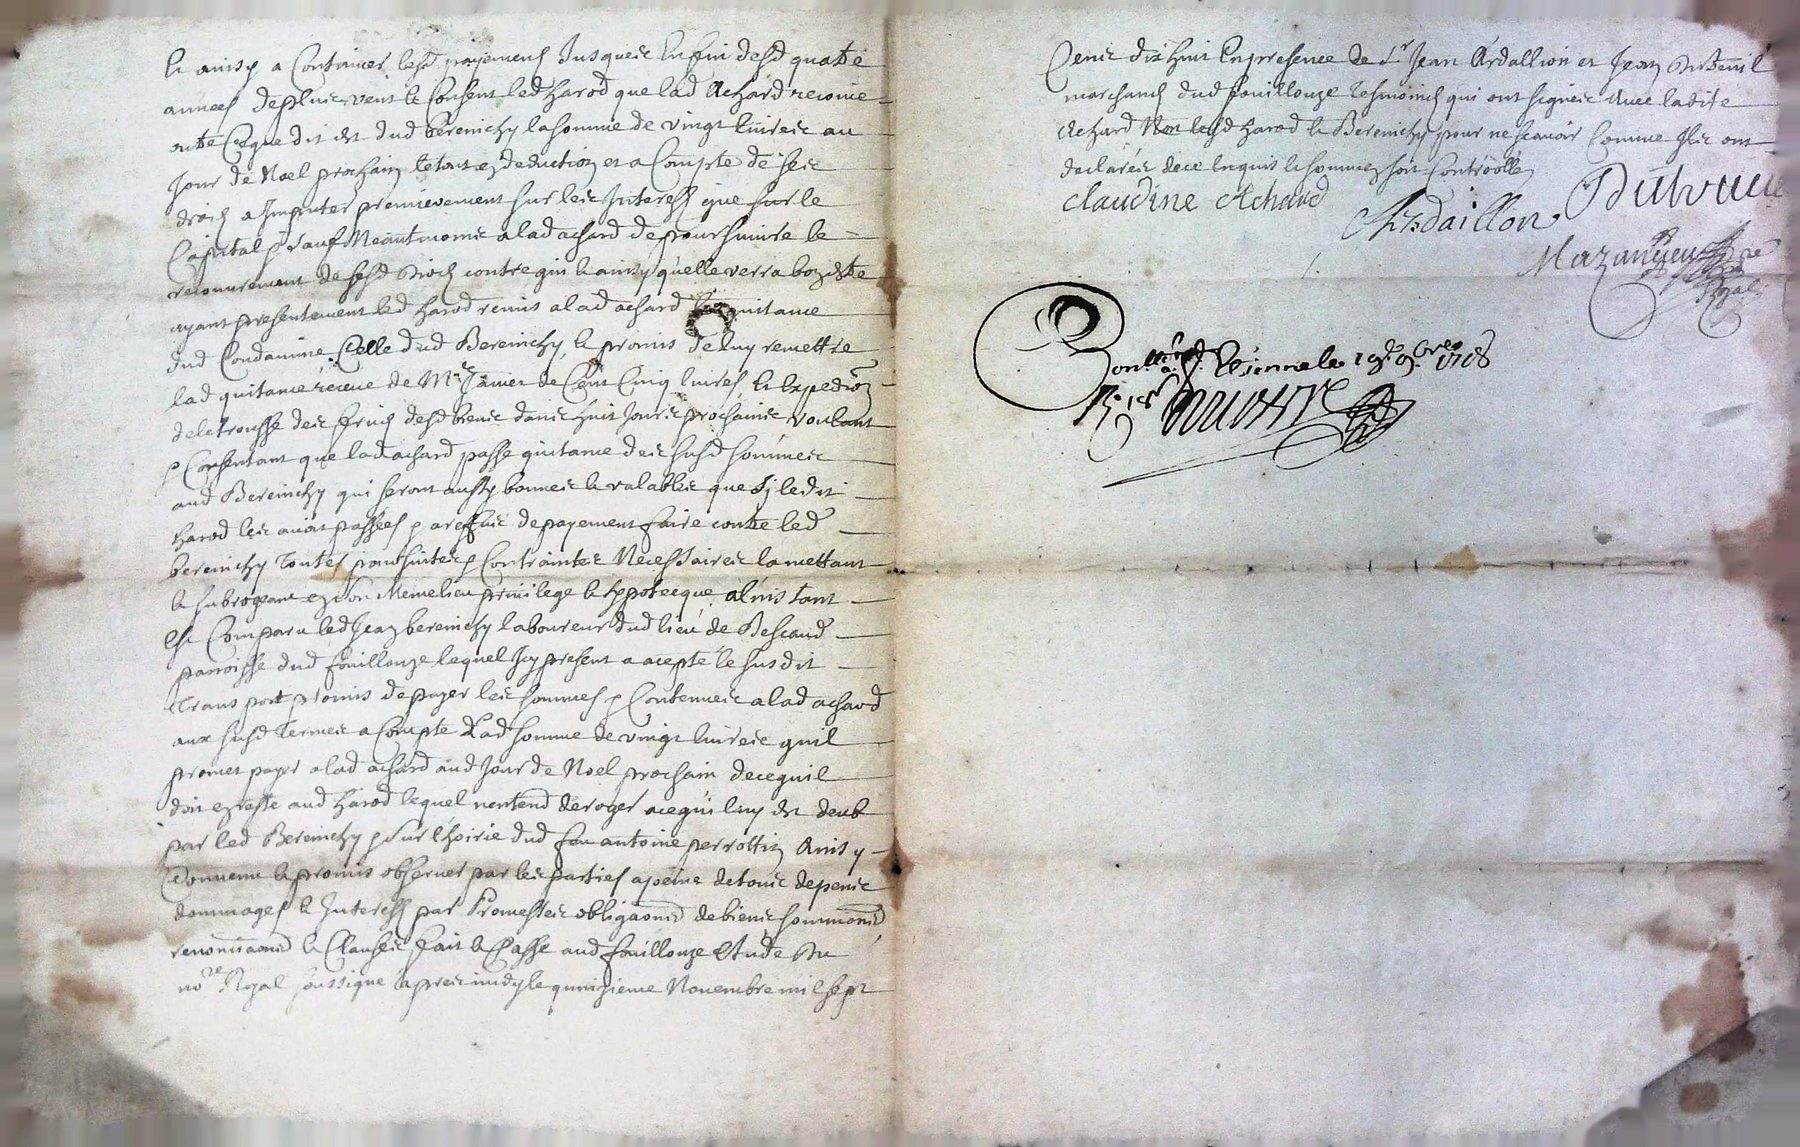 Et ainsy a Continuer lesd payements Jusques Enfin desd quatre
années deplus veut & Consent led harod que lad Achard recouvre
outre Ceque dit est dud bereinchy la somme de vingt livres au
Jour de Noel prochain letout en deduction et a Compte de ses
droits a Imputer premierement sur les Interests que sur le
Capital sauf Neantmoins alad achard de poursuivre le
recouvrement de sesd droits contre qui & ainsy qu'elle verra bon estre
ayant presentement led harod remis alad achard quitance
dud Condamine Celle dud Bereinchy, & promis de luy remettre
lad quitance receue de Mr Janier de Cent Cinq livres & Expedion
deletrousse des fruits desd biens dans huit Jours prochains voulant
& Consentant que lad achard passe quitance des susd sommes
aud Bereinchy qui seront aussy bonnes & valables que sy ledit
harod les avoit passées & a reffus de payement faire contre led
bereinchy Toutes poursuites & Contraintes Necessaires la mettant
& subrogeant en son Meme lieu privilege & hypotecque a linstant
Est Comparu led Jean bereinchy laboureur dud lieu de Bescaud
parroisse dud fouillouze lequel Icy present a acepté le susdit
Transport promis de payer les sommes y Contenues alad achard
aux susd Termes a Compte Lad somme de vingt livres quil
promet payer alad achard aud Jour de Noel prochain de cequil
doit en reste aud harod lequel nentend deroger acequi luy est deub
par led Bereinchy sur lhoirie dud feu antoine perrottin Ainsy
Convenu & promis observer par les parties a peine de tous depens
dommages & Interests par Promesses obligaons de biens soummons
renontiaons & Clauses fait & Passé aud fouillouze Etude du
nore Royal soussigné apres midy le quinzieme Novembre mil sept
Cents dix huit En presence de Sr Jean Ardallion et Jean Dubreuil
marchands dud fouillouze Tesmoings qui ont signes avec ladite
Achard Non lesd harod & Bereinchy pour ne scavoir Comme Ils ont
declarés dece Enquis & sommes soit Controolle
Claudine Achard
Ardaillon
Dubrueil
Mazancieu
nre Royal
Contlle a St Etienne le 19e 9bre 1718
R. 18s